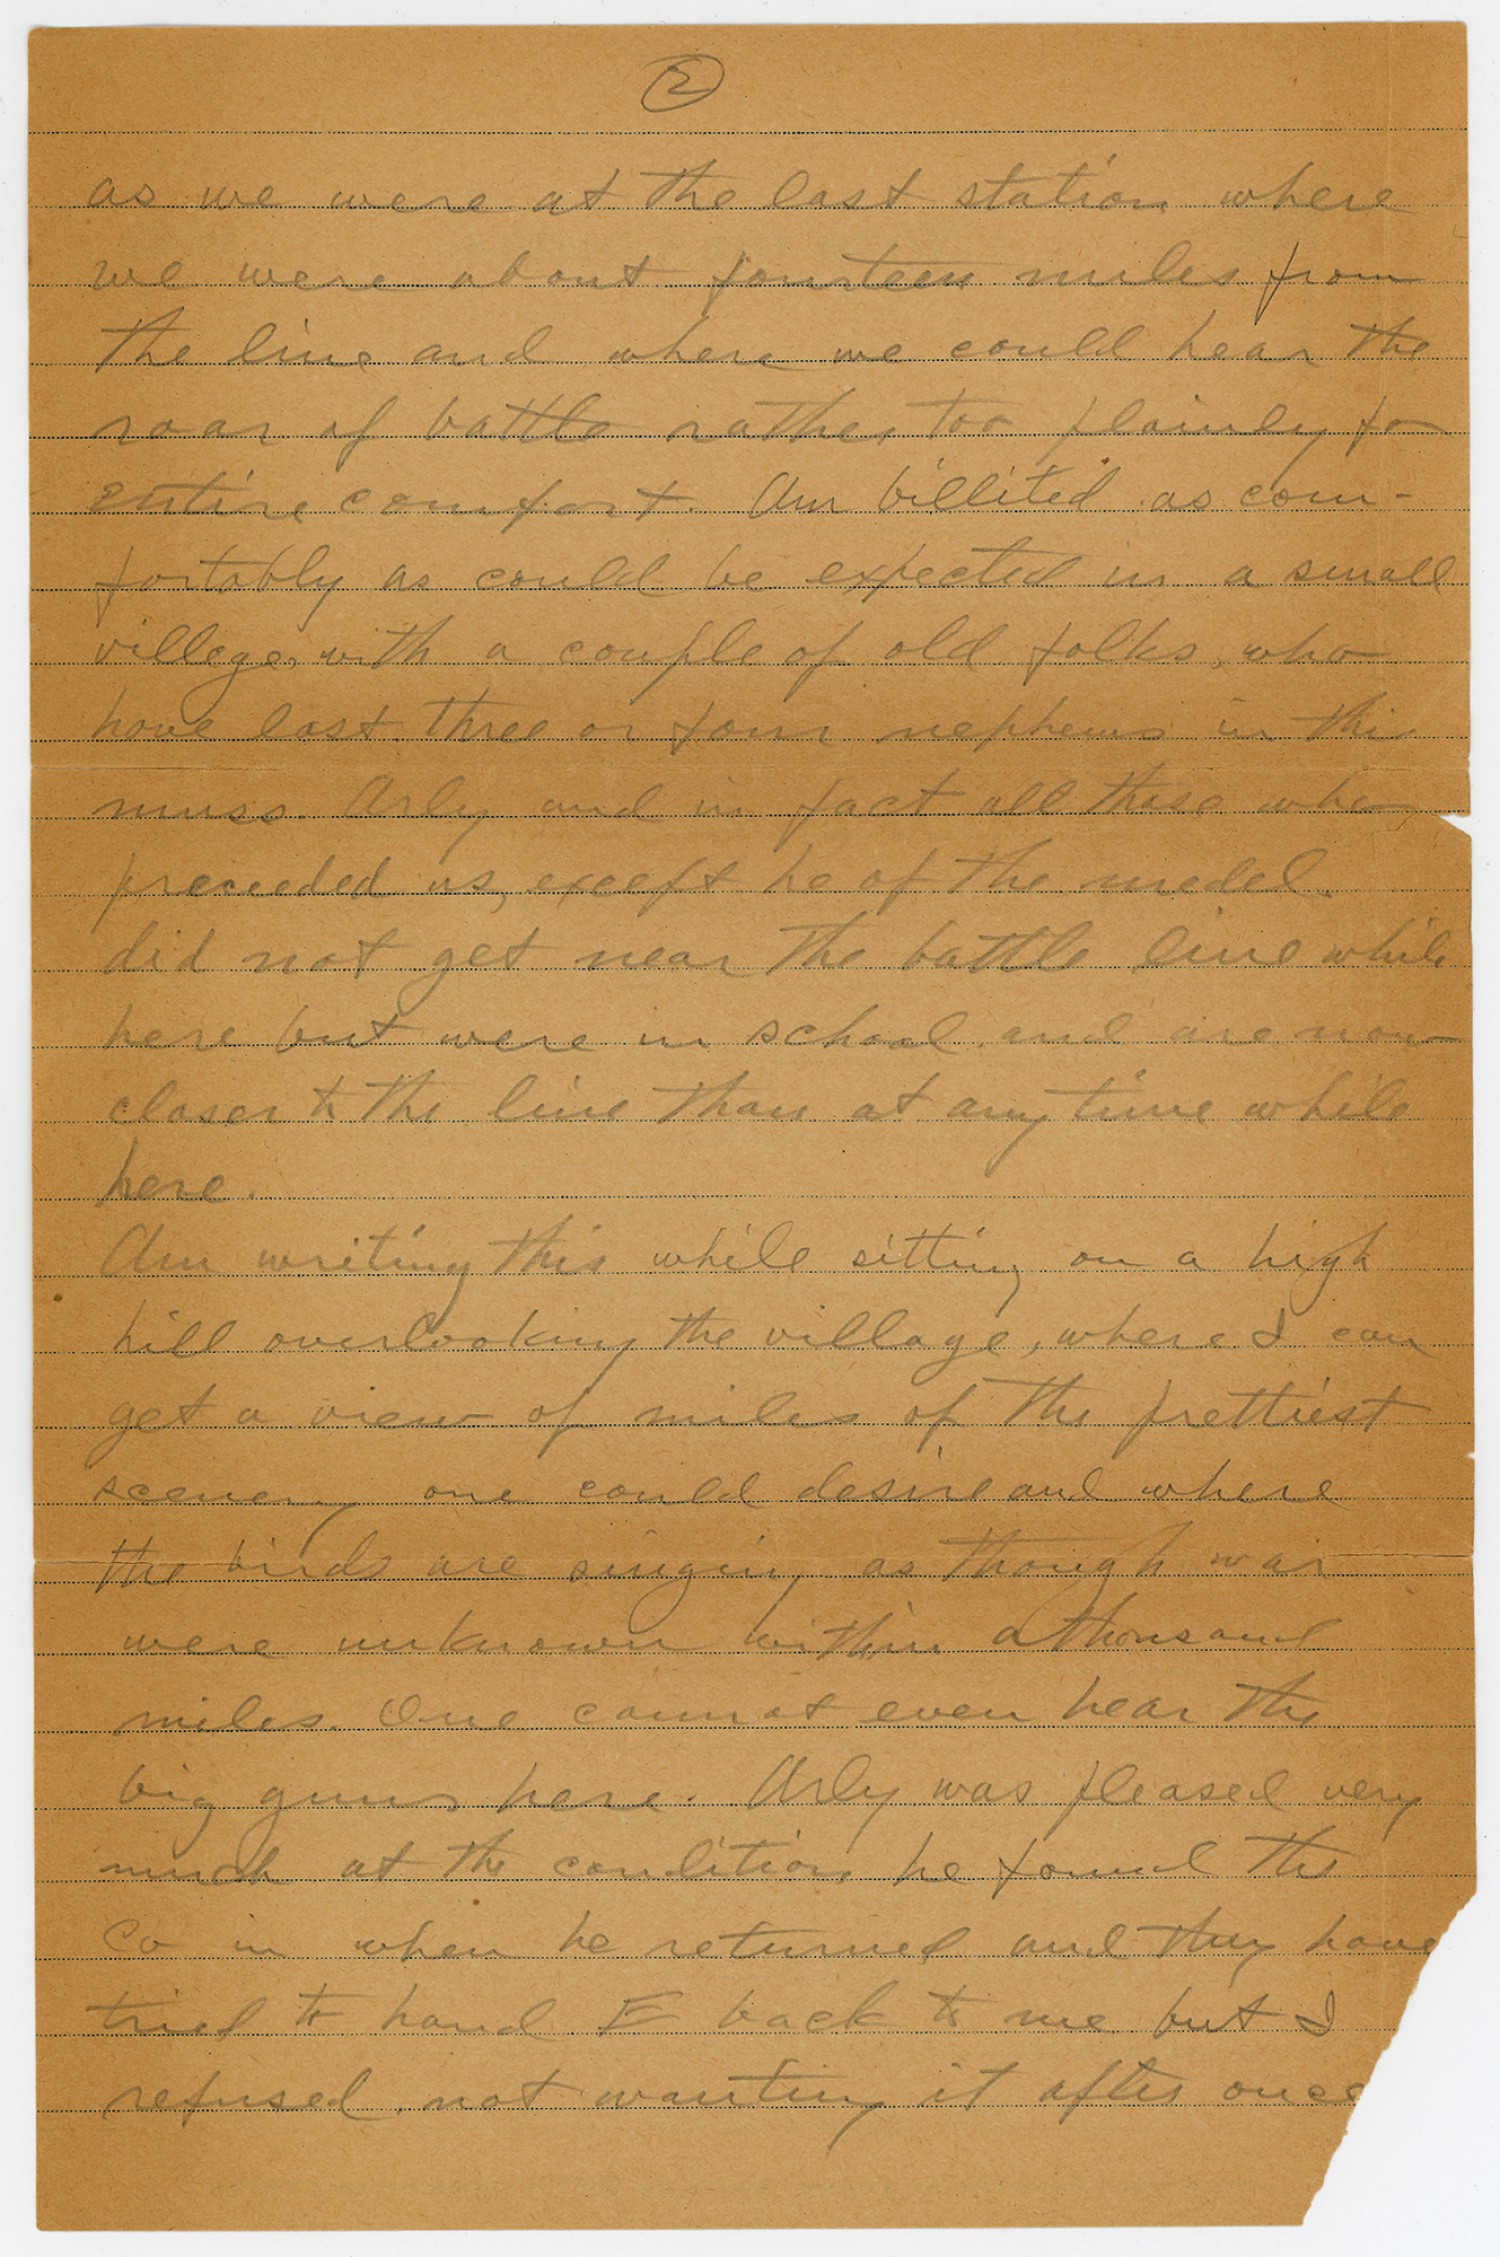 2
as we were at the last station where
we were about fourteen miles from
the line and where we could hear the
roar of battle rather too plainly for
entire comfort. Am billited as com-
fortably as could be expected in a small
villege, with a couple of old folks, who
have lost three or four nephews in this
muss. Arly and in fact all those who
preceeded us, except he of the medel.
did not get near the battle line while
here but were in school and are now
closer to the line than at any time while
here.
Am writing this while sitting on a high
hill overlooking the village, where I can
get a view of miles of the prettiest
scenery one could desire and where
the birds are singing as though war
were unknown within a thousand
miles. One cannot even hear the
big guns here. Arly was pleased very
much at the condition he found the
Co in when he returned and they have
tried to hand E back to me but I
refused, not wanting it after once